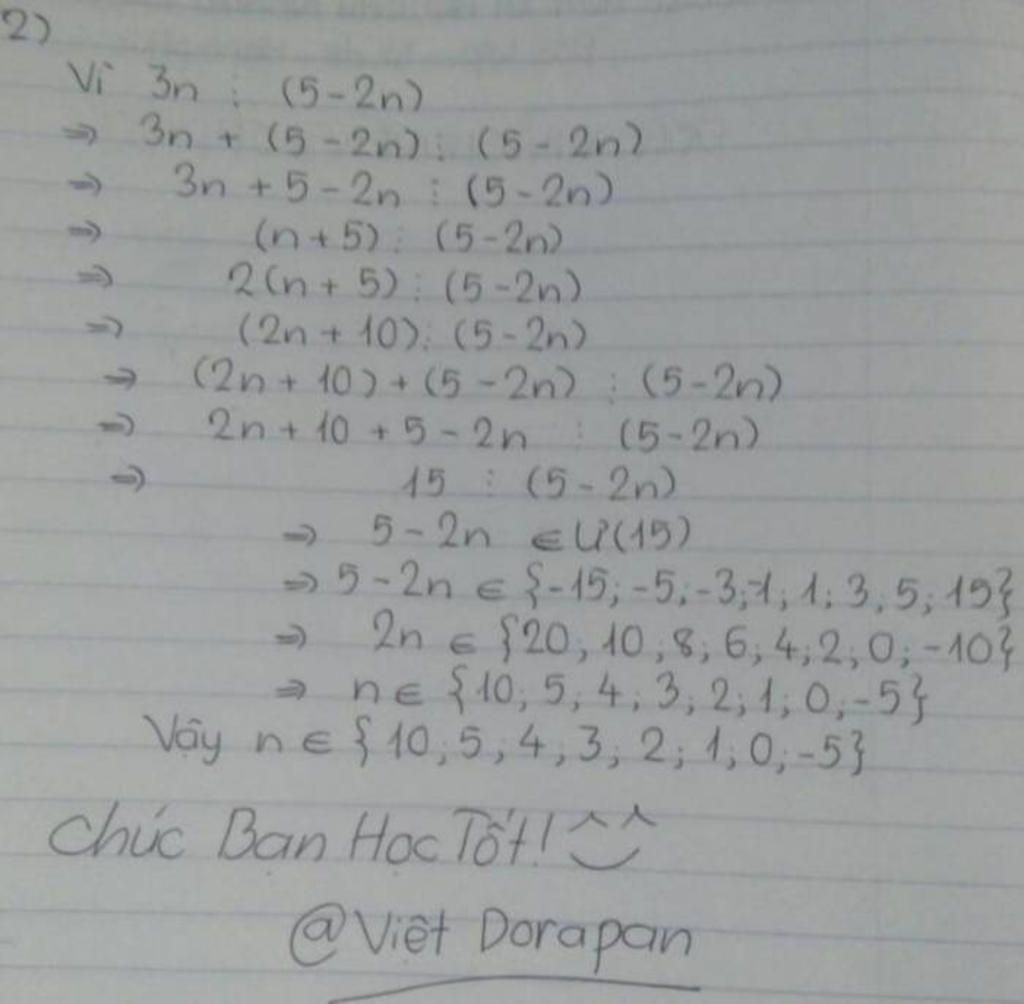 2)
Vì 3n ⋮ (5-2n)
⇒ 3n + (5-2n) ⋮ (5-2n)
⇒ 3n + 5 - 2n ⋮ (5-2n)
⇒ (n+5) ⋮ (5-2n)
⇒ 2(n+5) ⋮ (5-2n)
⇒ (2n+10) ⋮ (5-2n)
⇒ (2n+10)+(5-2n) ⋮ (5-2n)
⇒ 2n+10+5-2n ⋮ (5-2n)
⇒ 15 ⋮ (5-2n)
⇒ 5-2n ∈ Ư(15)
⇒ 5-2n ∈ {-15; -5; -3; -1; 1; 3; 5; 15}
⇒ 2n ∈ {20; 10; 8; 6; 4; 2; 0; -10}
⇒ n ∈ {10; 5; 4; 3; 2; 1; 0; -5}
Vậy n ∈ {10; 5; 4; 3; 2; 1; 0; -5}
Chúc Bạn Học Tốt! ^^
@Việt Dorapan